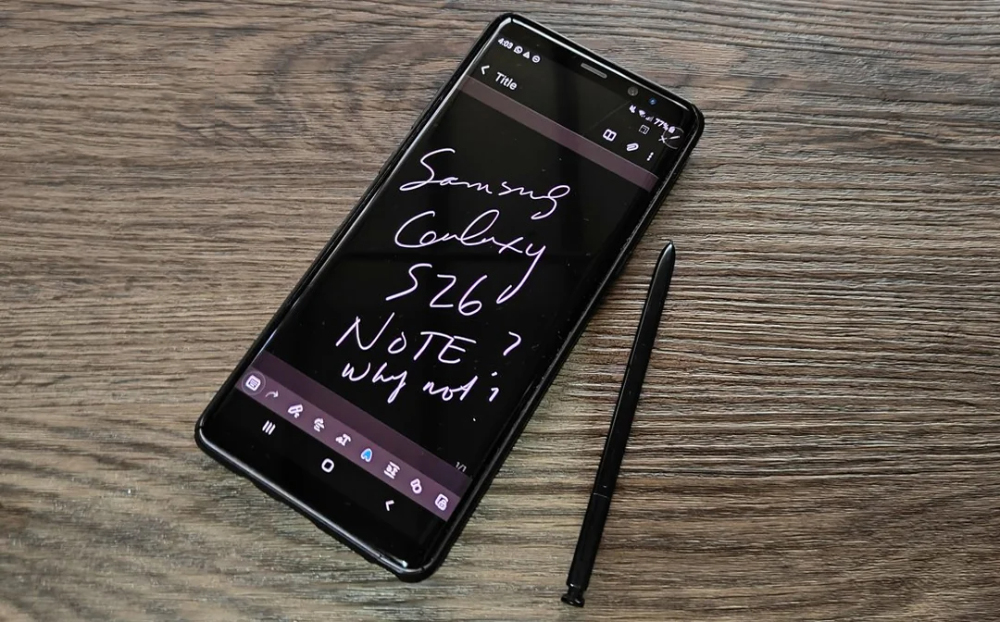 4:03
77%
Title
Samsung
Galaxy
S26
NOTE ?
Why not ?
1/1